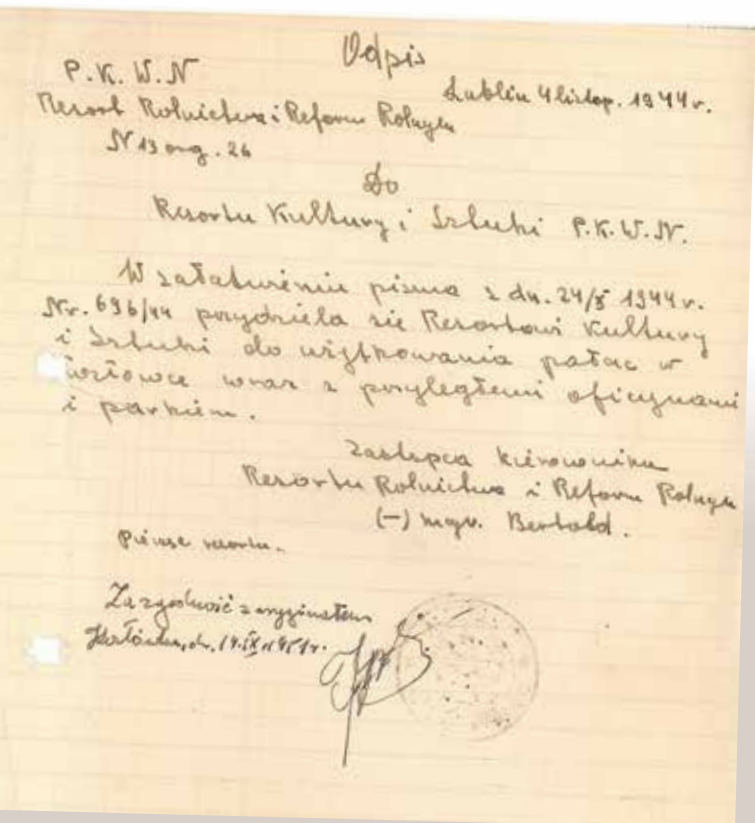 Odpis
P.K.W.N
Lublin 4 listop. 1944 r.
Resort Rolnictwa i Reform Rolnych
N 13 org. 26
Do
Resortu Kultury i Sztuki P.K.W.N.
W załatwieniu pisma z dn. 24/X 1944 r.
Nr. 696/44 przydziela się Resortowi Kultury
i Sztuki do użytkowania pałac w
Kozłówce wraz z przyległemi oficynami
i parkiem.
Zastępca Kierownika
Resortu Rolnictwa i Reform Rolnych
(-) mgr. Bertold.
Pieczęć resortu.
Za zgodność z oryginałem
Kozłówka, dn. 14.IX.1951 r.